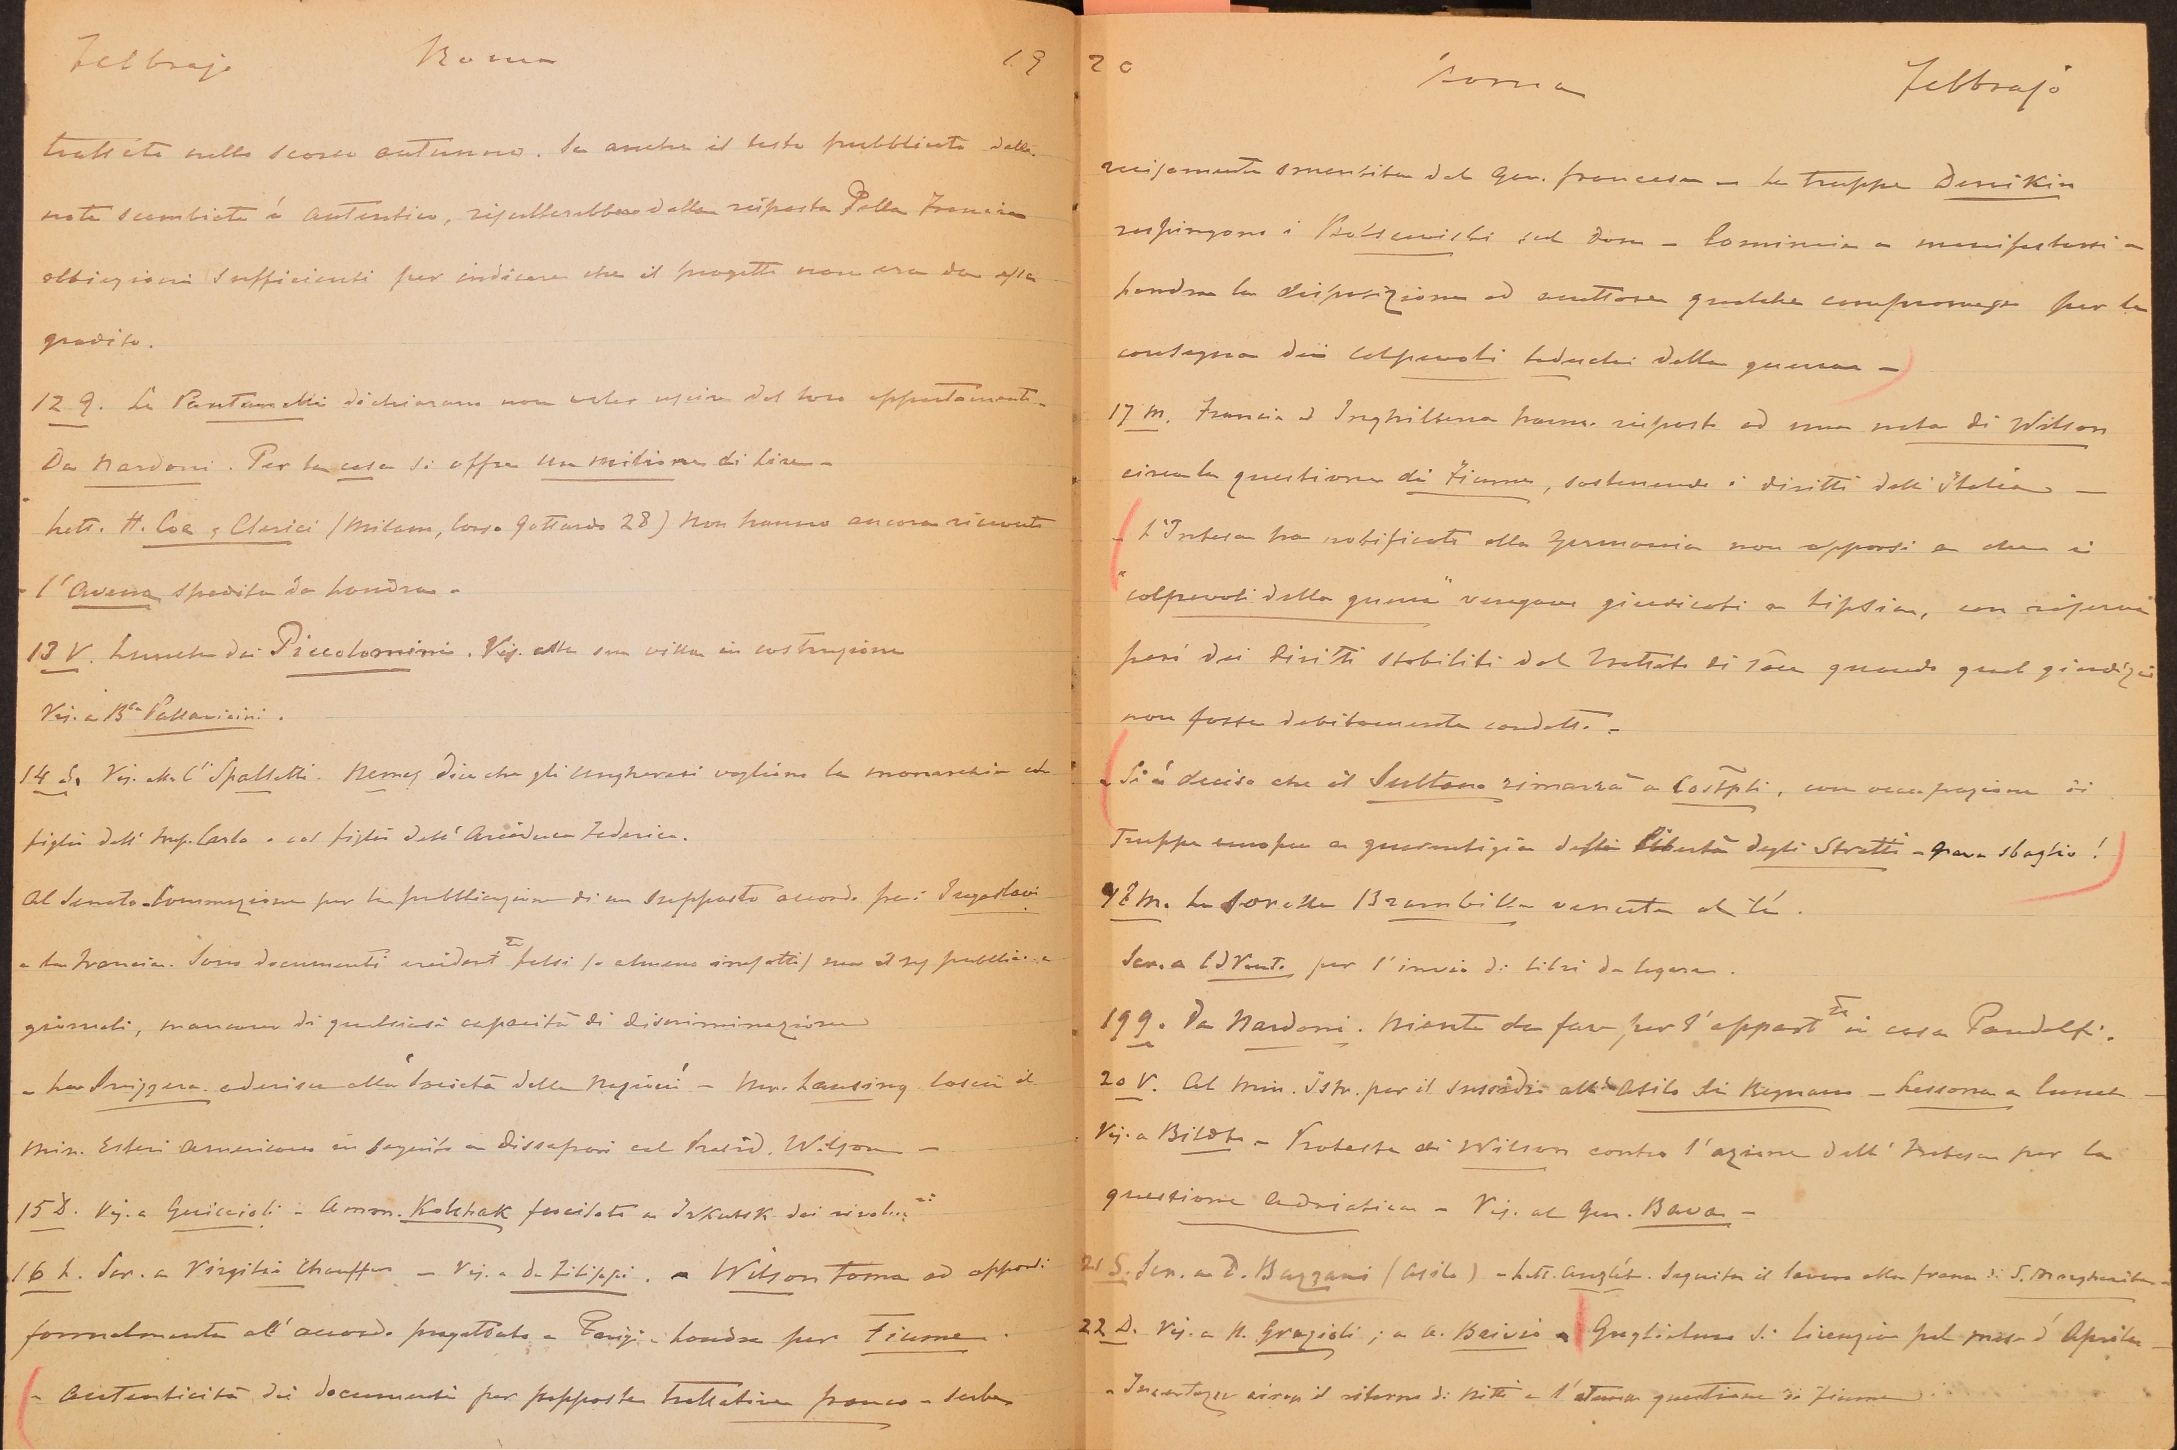 Febbrajo Roma 19
trattate nello scorso autunno. Se anche il testo pubblicato delle
note scambiate è autentico, risulterebbero dalla risposta della Francia
obbiezioni sufficienti per indicare che il progetto non era da essa
gradito.
12 G. Le Pantanelli dichiarano non voler uscire dal loro appartamento.
Da Nardoni. Per la casa si offre un milione di lire -
Lett. H. Coe & Clerici (Milano, Corso Gottardo 28) Non hanno ancora ricevuto
l'avena spedita da Londra.
13 V. Lunch dai Piccolomini. Vis. alla sua villa in costruzione
Vis. a Bssa Pallavicini.
14 S. Vis. alla C Spalletti. Nemes dice che gli Ungheresi vogliono la monarchia col
figlio dell'Imp. Carlo o col figlio dell'Arciduca Federico.
Al Senato. Commozione per la pubblicazione di un supposto accordo fra i Jugoslavi
e la Francia. Sono documenti evident.te falsi (o almeno inesatti) ma
giornali, mancano di qualsiasi capacità di discriminazione
- La Svizzera aderisce alla Società delle Nazioni - Mr. Lansing lascia il
Min. Esteri Americano in seguito a dissapori col Presid. Wilson -
15 D. Vis. a Guiccioli - Amm. Kolchak fucilato a Irkutsk dai rivoluz.ri
16 L. Scr. a Virgilio Chauffeur - Vis. a De Filippi. - Wilson torna ad opporsi
formalmente all'accordo progettato a Parigi e Londra per Fiume.
- Autenticità dei documenti per supposte trattative franco-serbe
20 Roma Febbrajo
recisamente smentita dal Gov. francese - Le truppe Denikin
respingono i Bolscevichi sul Don - Comincia a manifestarsi a
Londra la disposizione ad accettare qualche compromesso per la
consegna dei colpevoli tedeschi della guerra -
17 M. Francia ed Inghilterra hanno risposto ad una nota di Wilson
circa la questione di Fiume, sostenendo i diritti dell'Italia -
- L'Intesa ha notificato alla Germania non opporsi a che i
"colpevoli della guerra" vengano giudicati a Lipsia, con riserva
però dei diritti stabiliti dal trattato di pace quando quel giudizio
non fosse debitamente condotto.
- Si è deciso che il Sultano rimarrà a Costpli, con occupazione di
truppe europee a guarentigia della libertà degli Stretti - grave sbaglio!
18 M. La sorella Brambilla venuta al tè.
Scr. a per l'invio di libri da legare.
19 G. Da Nardoni. Niente da fare per l'appart.to in casa Pandolfi.
20 V. Al Min. Istr. per il sussidio all'Asilo di Bregnano - Lessona a lunch -
Vis. a Bildt - Proteste di Wilson contro l'azione dell'Intesa per la
questione Adriatica - Vis. al Gen. Bava -
21 S. Scr. a D. Bazzani (Asilo) - Lett. Anzlét. Seguita il lavoro alla frana di S. Margherita -
22 D. Vis. a N. Grazioli; a A. Brivio - Guglielmo si licenzia pel mese d'Aprile -
- Incertezze circa il ritorno di Nitti e l'eterna questione di Fiume